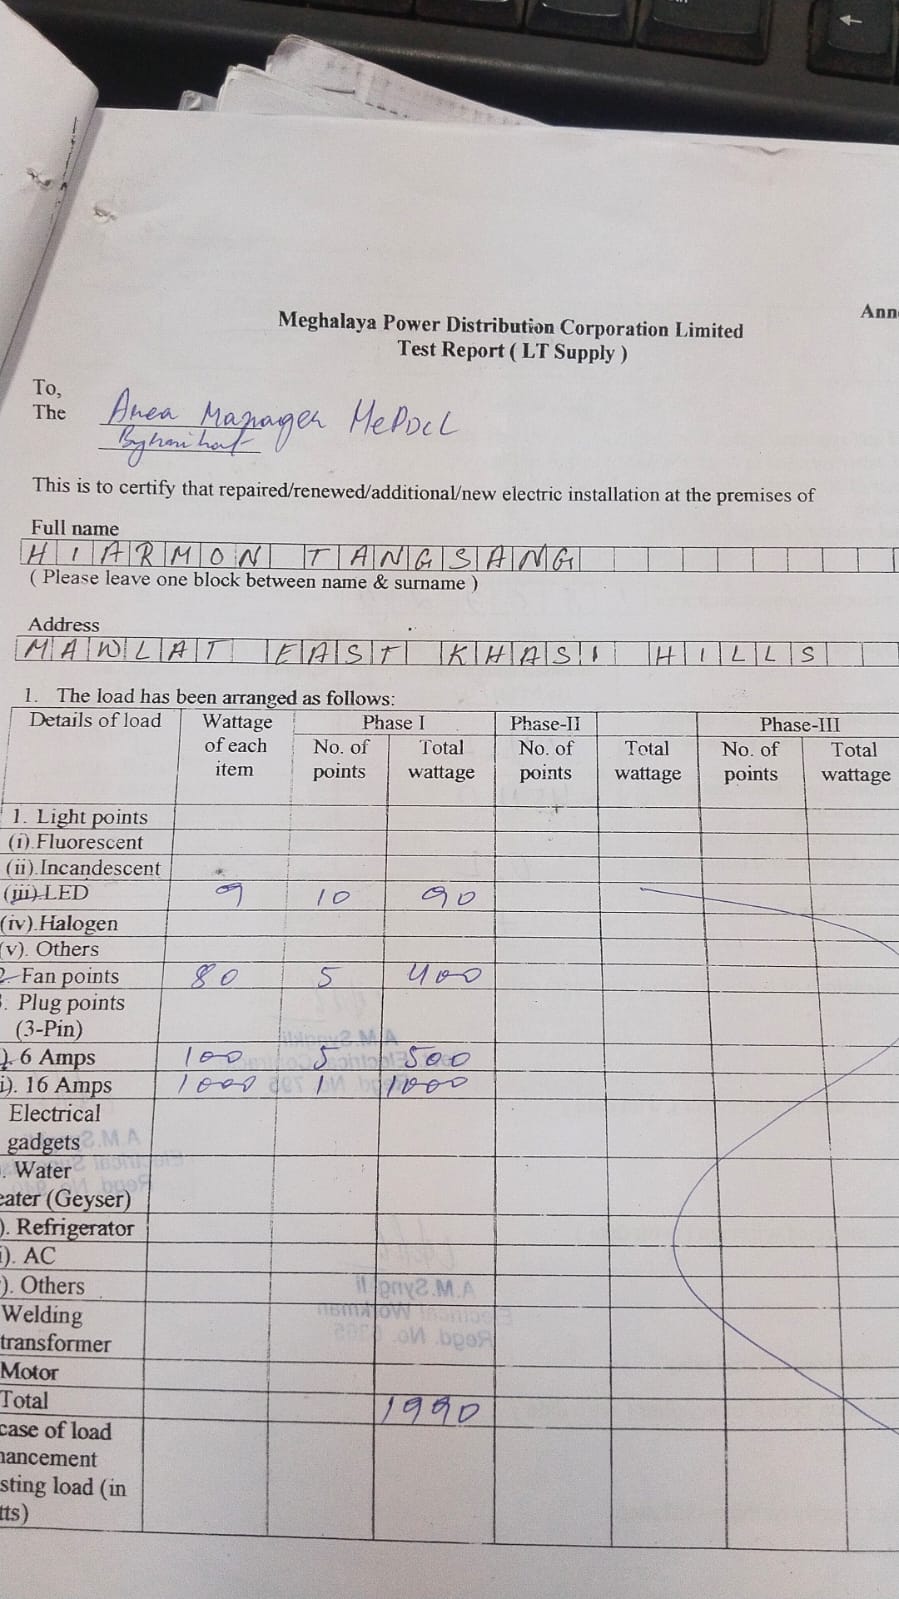 Ann
Meghalaya Power Distribution Corporation Limited
Test Report ( LT Supply )
To,
The Area Manager MePDCL
Byrnihat
This is to certify that repaired/renewed/additional/new electric installation at the premises of
Full name
HIARMON TANGSANG
( Please leave one block between name & surname )
Address
MAWLAT EAST KHASI HILLS
1. The load has been arranged as follows:
Details of load Wattage of each item Phase I Phase-II Phase-III
No. of points Total wattage No. of points Total wattage No. of points Total wattage
1. Light points
(i).Fluorescent
(ii).Incandescent
(iii).LED 9 10 90
(iv).Halogen
(v). Others
2. Fan points 80 5 400
. Plug points
(3-Pin)
). 6 Amps 100 5 500
i). 16 Amps 1000 1 1000
Electrical
gadgets
. Water
eater (Geyser)
). Refrigerator
i). AC
). Others
Welding
transformer
Motor
Total 1990
case of load
nancement
sting load (in
tts)